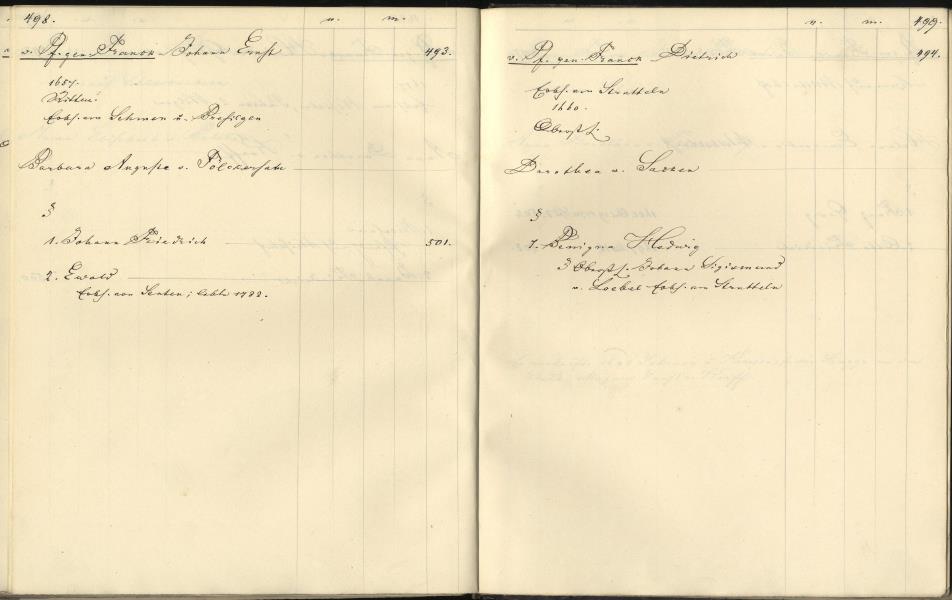 498. v. m.
v. Pf. gen. Franck Johann Ernst 493.
1657.
Erbh. von Sehmen u.
Barbara Auguste v. Polckersahm
1. Johann Friedrich 501.
2. Ewald
Erbh. von ; lebte 1722.
v. m. 499.
v. Pf. gen. Franck Dietrich 494.
Erbh. von Strutteln
1660.
Oberstl.
Dorothea v. Sassen
1. Benigna Hedwig
Oberstl. Johann Sigismund
v. Loebel Erbh. von Strutteln